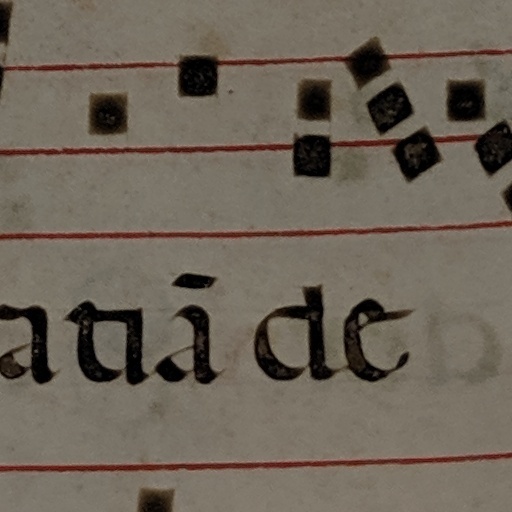 auā de